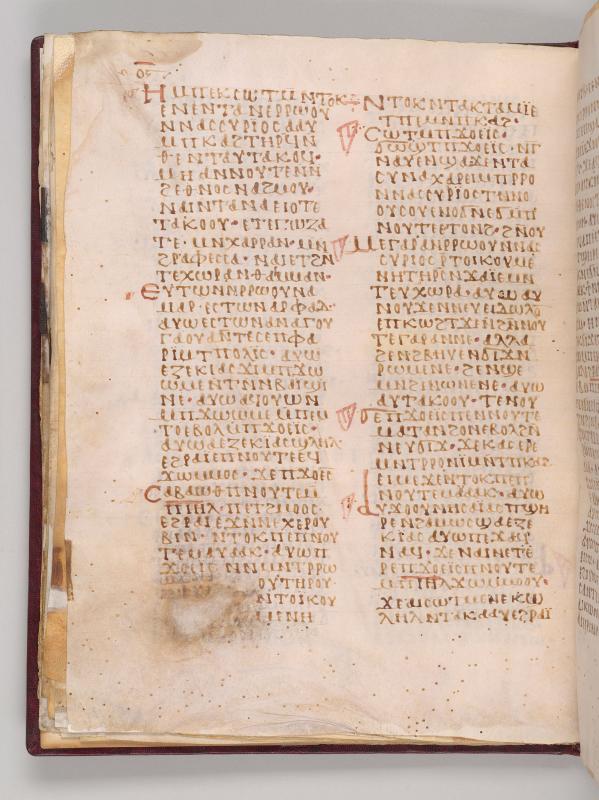 ⲟⲋ
ⲏ ⲙⲡⲉⲕⲥⲱⲧⲙ ⲛⲧⲟⲕ
ⲉⲛⲉⲛⲧⲁⲛⲉⲣⲣⲱⲟⲩ
ⲛⲛⲁⲥⲥⲩⲣⲓⲟⲥ ⲁⲁⲩ
ⲙⲡⲕⲁϩ ⲧⲏⲣϥ ⲛ
ⲑⲉⲛⲧⲁⲩⲧⲁⲕⲟϥ·
ⲙⲏ ⲁⲛⲛⲟⲩⲧⲉ ⲛⲛ
ϩⲉⲑⲛⲟⲥ ⲛⲁϩⲙⲟⲩ·
ⲛⲁⲓ ⲛⲧⲁⲛⲁⲉⲓⲟⲧⲉ
ⲧⲁⲕⲟⲟⲩ· ⲉⲧⲉⲅⲱⲍⲁ
ⲧⲉ· ⲙⲛⲭⲁⲣⲣⲁⲛ· ⲙⲛ
ϩⲣⲁⲫⲉⲥⲁ· ⲛⲁⲓ ⲉⲧϩⲛ
ⲧⲉⲭⲱⲣⲁ ⲛⲑⲁⲓⲙⲁⲛ·
ⲉⲩⲧⲱⲛ ⲛⲣⲣⲱⲟⲩ ⲛⲁ
ⲙⲁⲣ· ⲉⲥⲧⲱⲛ ⲁⲣⲫⲁⲗ·
ⲁⲩⲱ ⲉⲥⲧⲱⲛ ⲁⲛⲁⲅⲟⲩ
ⲅⲁⲟⲩⲁ ⲛⲧⲉⲥⲉⲡⲫⲁ
ⲣⲓⲙ ⲧⲡⲟⲗⲓⲥ· ⲁⲩⲱ
ⲉⲍⲉⲕⲓⲁⲥ ϫⲓ ⲙⲡϫⲱ
ⲱⲙⲉ ⲛⲧⲛ ⲛⲃⲁⲓϣⲓ
ⲛⲉ· ⲁⲩⲱ ⲁϥⲟⲩⲱⲛ
ⲙⲡϫⲱⲱⲙⲉ ⲙⲡⲉⲙ
ⲧⲟ ⲉⲃⲟⲗ ⲙⲡϫⲟⲉⲓⲥ·
ⲁⲩⲱ ⲁⲉⲍⲉⲕⲓⲁⲥ ϣⲗⲏⲗ
ⲉϩⲣⲁⲓ ⲉⲡⲛⲟⲩⲧⲉ ⲉϥ
ϫⲱ ⲙⲙⲟⲥ· ϫⲉ ⲡϫⲟⲉⲓⲥ
ⲥⲁⲃⲁⲱⲑ ⲡⲛⲟⲩⲧⲉ ⲙ
ⲡⲓⲏⲗ· ⲡⲉⲧϩⲙⲟⲟⲥ
ⲉϩⲣⲁⲓ ⲉϫⲛ ⲛⲉⲭⲉⲣⲟⲩ
ⲃⲓⲛ· ⲛⲧⲟⲕ ⲡⲉ ⲡⲛⲟⲩ
ⲧⲉ ⲙⲁⲩⲁⲁⲕ· ⲁⲩⲱ ⲡ
ϫⲟⲉⲓⲥ ⲛⲙⲙⲛⲧⲣⲣⲱ
ⲟⲩ ⲧⲏⲣⲟⲩ
ⲛⲧⲟⲓⲕⲟⲩ
ⲙⲉⲛⲏ
ⲛⲧⲟⲕ ⲛⲧⲁⲕⲧⲁⲙⲓⲉ
ⲧⲡⲉ ⲙⲛ ⲡⲕⲁϩ·
ⲥⲱⲧⲙ ⲡϫⲟⲉⲓⲥ·
ϭⲱϣⲧ ⲡϫⲟⲉⲓⲥ· ⲛⲅ
ⲛⲁⲩ ⲉⲛϣⲁϫⲉ ⲛⲧⲁ
ⲥⲩⲛⲁⲭⲁⲣⲉⲓⲙ ⲡⲣⲣⲟ
ⲛⲛⲁⲥⲥⲩⲣⲓⲟⲥ ⲧⲛⲛⲟ
ⲟⲩⲥⲟⲩ ⲉⲛⲟϭⲛⲉϭ ⲙⲡ
ⲛⲟⲩⲧⲉ ⲉⲧⲟⲛϩ· ϩⲛ ⲟⲩ
ⲙⲉ ⲅⲁⲣ ⲁⲛⲣⲣⲱⲟⲩ ⲛⲛⲁⲥ
ⲥⲩⲣⲓⲟⲥ ⲣ ⲧⲟⲓⲕⲟⲩⲙⲉ
ⲛⲏ ⲧⲏⲣⲥ ⲛϫⲁⲓⲉ ⲙⲛ
ⲧⲉⲩⲭⲱⲣⲁ· ⲁⲩⲱ ⲁⲩ
ⲛⲟⲩϫⲉ ⲛⲛⲉⲩⲉⲓⲇⲱⲗⲟⲛ
ⲉⲡⲕⲱϩⲧ ϫⲉ ⲛϩⲉⲛⲛⲟⲩ
ⲧⲉ ⲅⲁⲣ ⲁⲛ ⲛⲉ· ⲁⲗⲗⲁ
ϩⲉⲛϩⲃⲏⲩⲉ ⲛϭⲓϫ ⲛ
ⲣⲱⲙⲉ ⲛⲉ· ϩⲉⲛϣⲉ
ⲙⲛ ϩⲉⲛⲱⲛⲉ ⲛⲉ· ⲁⲩⲱ
ⲁⲩⲧⲁⲕⲟⲟⲩ· ⲧⲉⲛⲟⲩ
ϭⲉ ⲡϫⲟⲉⲓⲥ ⲡⲉⲛⲛⲟⲩⲧⲉ
ⲙⲁⲧⲁⲛϩⲟⲛ ⲉⲃⲟⲗϩⲛ
ⲛⲉⲩϭⲓϫ· ϫⲉⲕⲁⲥ ⲉⲣⲉ
ⲙⲛⲧⲣⲣⲟ ⲛⲓⲙ ⲙⲡⲕⲁϩ
ⲉⲓⲙⲉ ϫⲉ ⲛⲧⲟⲕ ⲡⲉ ⲡ
ⲛⲟⲩⲧⲉ ⲙⲁⲩⲁⲁⲕ· ⲁⲩⲱ
ⲁⲩϫⲟⲟⲩ ⲛⲏⲥⲁⲓⲁⲥ ⲡϣⲏ
ⲣⲉ ⲛϩⲁⲙⲱⲥ ϣⲁ ⲉⲍⲉ
ⲕⲓⲁⲥ ⲁⲩⲱ ⲡⲉϫⲁϥ
ⲛⲁϥ· ϫⲉ ⲛⲁⲓ ⲛⲉⲧⲉ
ⲣⲉ ⲡϫⲟⲉⲓⲥ ⲡⲛⲟⲩⲧⲉ
ⲙⲡⲓⲏⲗ ϫⲱ ⲙⲙⲟⲟⲩ·
ϫⲉ ⲁⲓⲥⲱⲧⲙ ⲉⲛⲉⲕϣ
ⲗⲏⲗ ⲛⲧⲁⲕⲁⲁⲩ ⲉϩⲣⲁⲓ